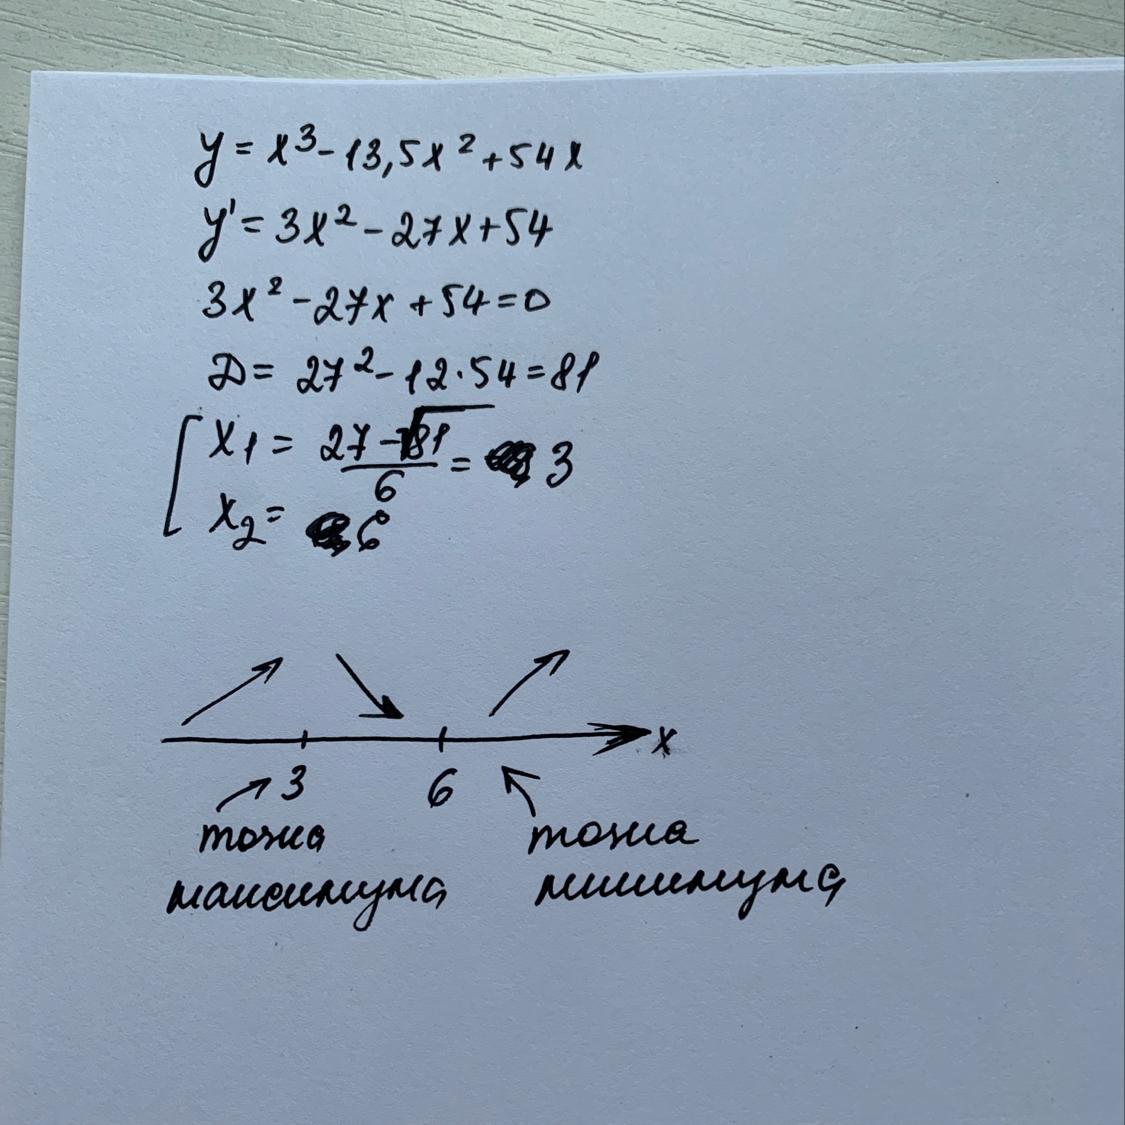 y = x³ - 13,5x² + 54x
y' = 3x² - 27x + 54
3x² - 27x + 54 = 0
D = 27² - 12·54 = 81
x₁ = (27 - √81)/6 = 3
x₂ = 6
x
3 6
точка точка
максимума минимума